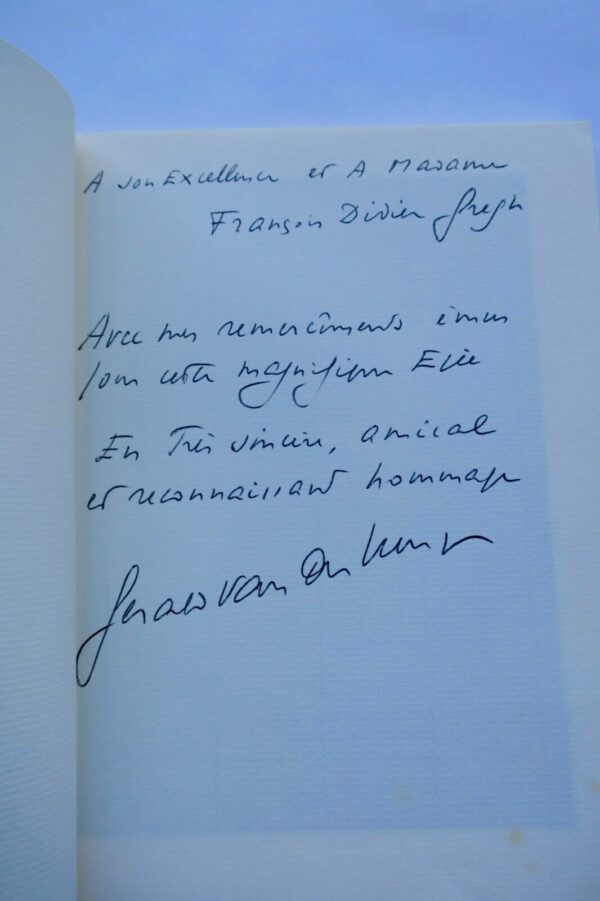 A son Excellence et A Madame
François Didier Gregh
Avec mes remerciments émus
pour cette magnifique Epée
En Très sincère, amical
et reconnaissant hommage
Gerald Van Der Kemp